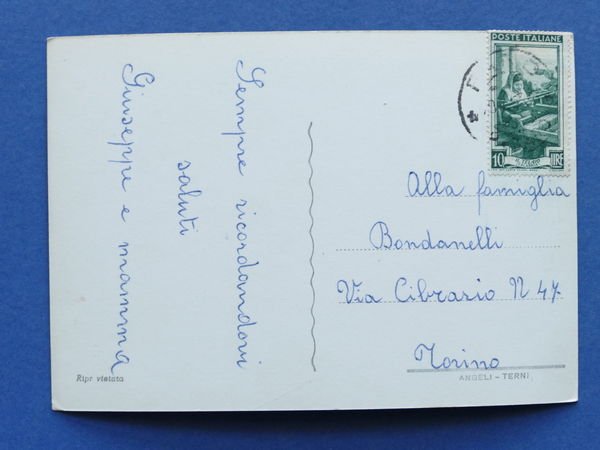 Sempre ricordandovi
saluti
Giuseppe e mamma
Ripr vietata
POSTE ITALIANE
10 LIRE
Alla famiglia
Bondanelli
Via Cibrario N 47
Torino
ANGELI - TERNI